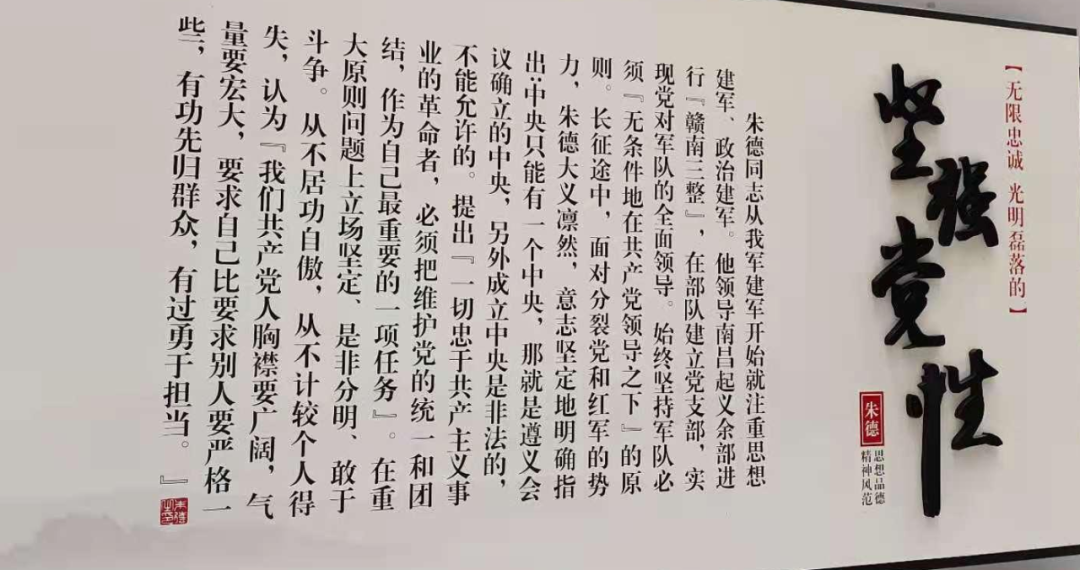 【无限忠诚 光明磊落的】
坚强党性
朱德
思想品德
精神风范
朱德同志从我军建军开始就注重思想
建军、政治建军。他领导南昌起义余部进
行『赣南三整』，在部队建立党支部，实
现党对军队的全面领导。始终坚持军队必
须『无条件地在共产党领导之下』的原
则。长征途中，面对分裂党和红军的势
力，朱德大义凛然，意志坚定地明确指
出：中央只能有一个中央，那就是遵义会
议确立的中央，另外成立中央是非法的，
不能允许的。提出『一切忠于共产主义事
业的革命者，必须把维护党的统一和团
结，作为自己最重要的一项任务』。在重
大原则问题上立场坚定、是非分明、敢于
斗争。从不居功自傲，从不计较个人得
失，认为『我们共产党人胸襟要广阔，气
量要宏大，要求自己比要求别人要严格一
些，有功先归群众，有过勇于担当。』